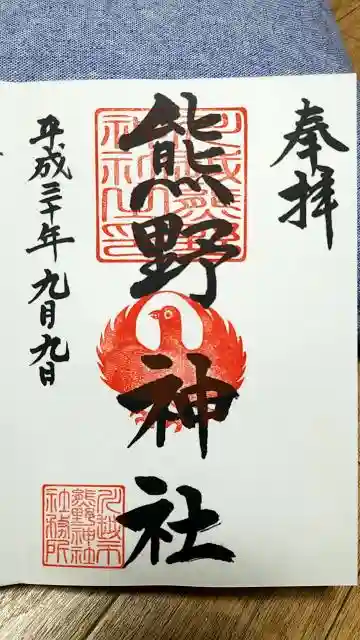 奉拝
熊野神社
平成三十年九月九日
川越熊野神社之印
川越市
熊野神社
社務所